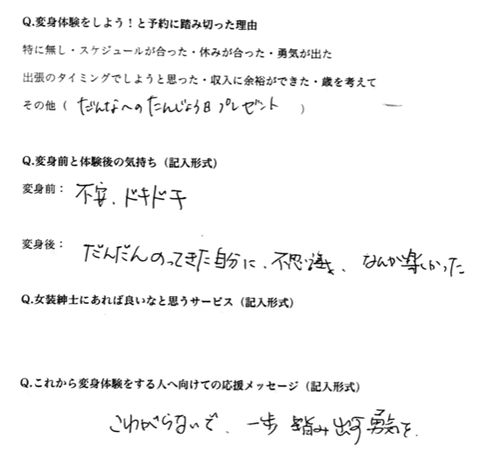 Q.変身体験をしよう！と予約に踏み切った理由
特に無し・スケジュールが合った・休みが合った・勇気が出た
出張のタイミングでしようと思った・収入に余裕ができた・歳を考えて
その他（ だんなへのたんじょう日プレゼント ）
Q.変身前と体験後の気持ち（記入形式）
変身前： 不安、ドキドキ
変身後： だんだんのってきた自分に、不思議、なんか楽しかった
Q.女装紳士にあれば良いなと思うサービス（記入形式）
Q.これから変身体験をする人へ向けての応援メッセージ（記入形式）
こわがらないで、一歩 踏み出す勇気を、